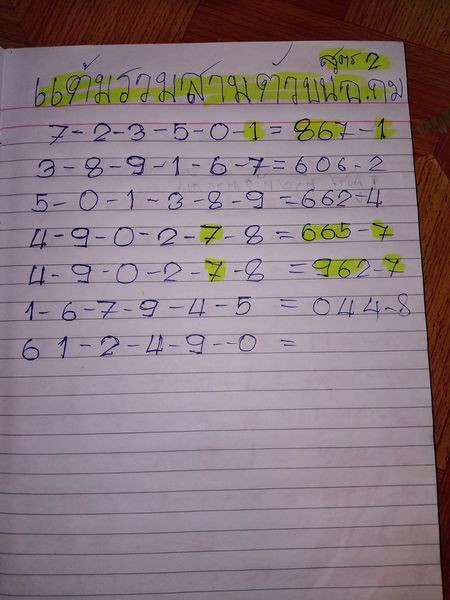 สูตร 2
แต้มรวมสามตัวบนฉ.กม
7-2-3-5-0-1 = 867-1
3-8-9-1-6-7=606-2
5-0-1-3-8-9=662-4
4-9-0-2-7-8 = 665-7
4-9-0-2-7-8 = 962-7
1-6-7-9-4-5 = 044-8
6 1-2-4-9--0 =